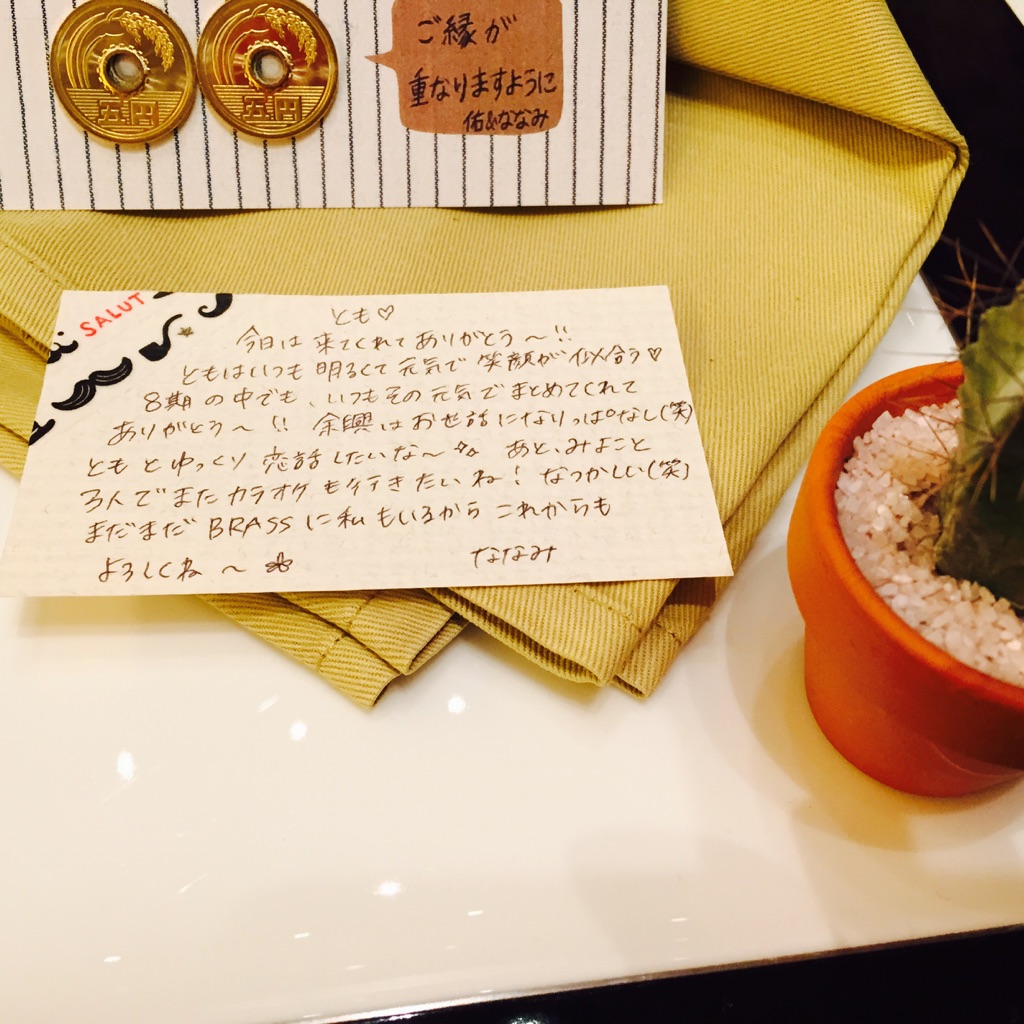 五円
五円
ご縁が
重なりますように
佑&ななみ
SALUT
とも♡
今日は来てくれてありがとう〜!!
ともはいつも明るくて元気で笑顔が似合う♡
8期の中でも、いつもその元気でまとめてくれて
ありがとう〜!! 余興はお世話になりっぱなし(笑)
ともとゆっくり恋話したいな〜☆ あと、みよこと
3人でまたカラオケも行きたいね!なつかしい(笑)
まだまだBRASSに私もいるからこれからも
よろしくね〜
ななみ